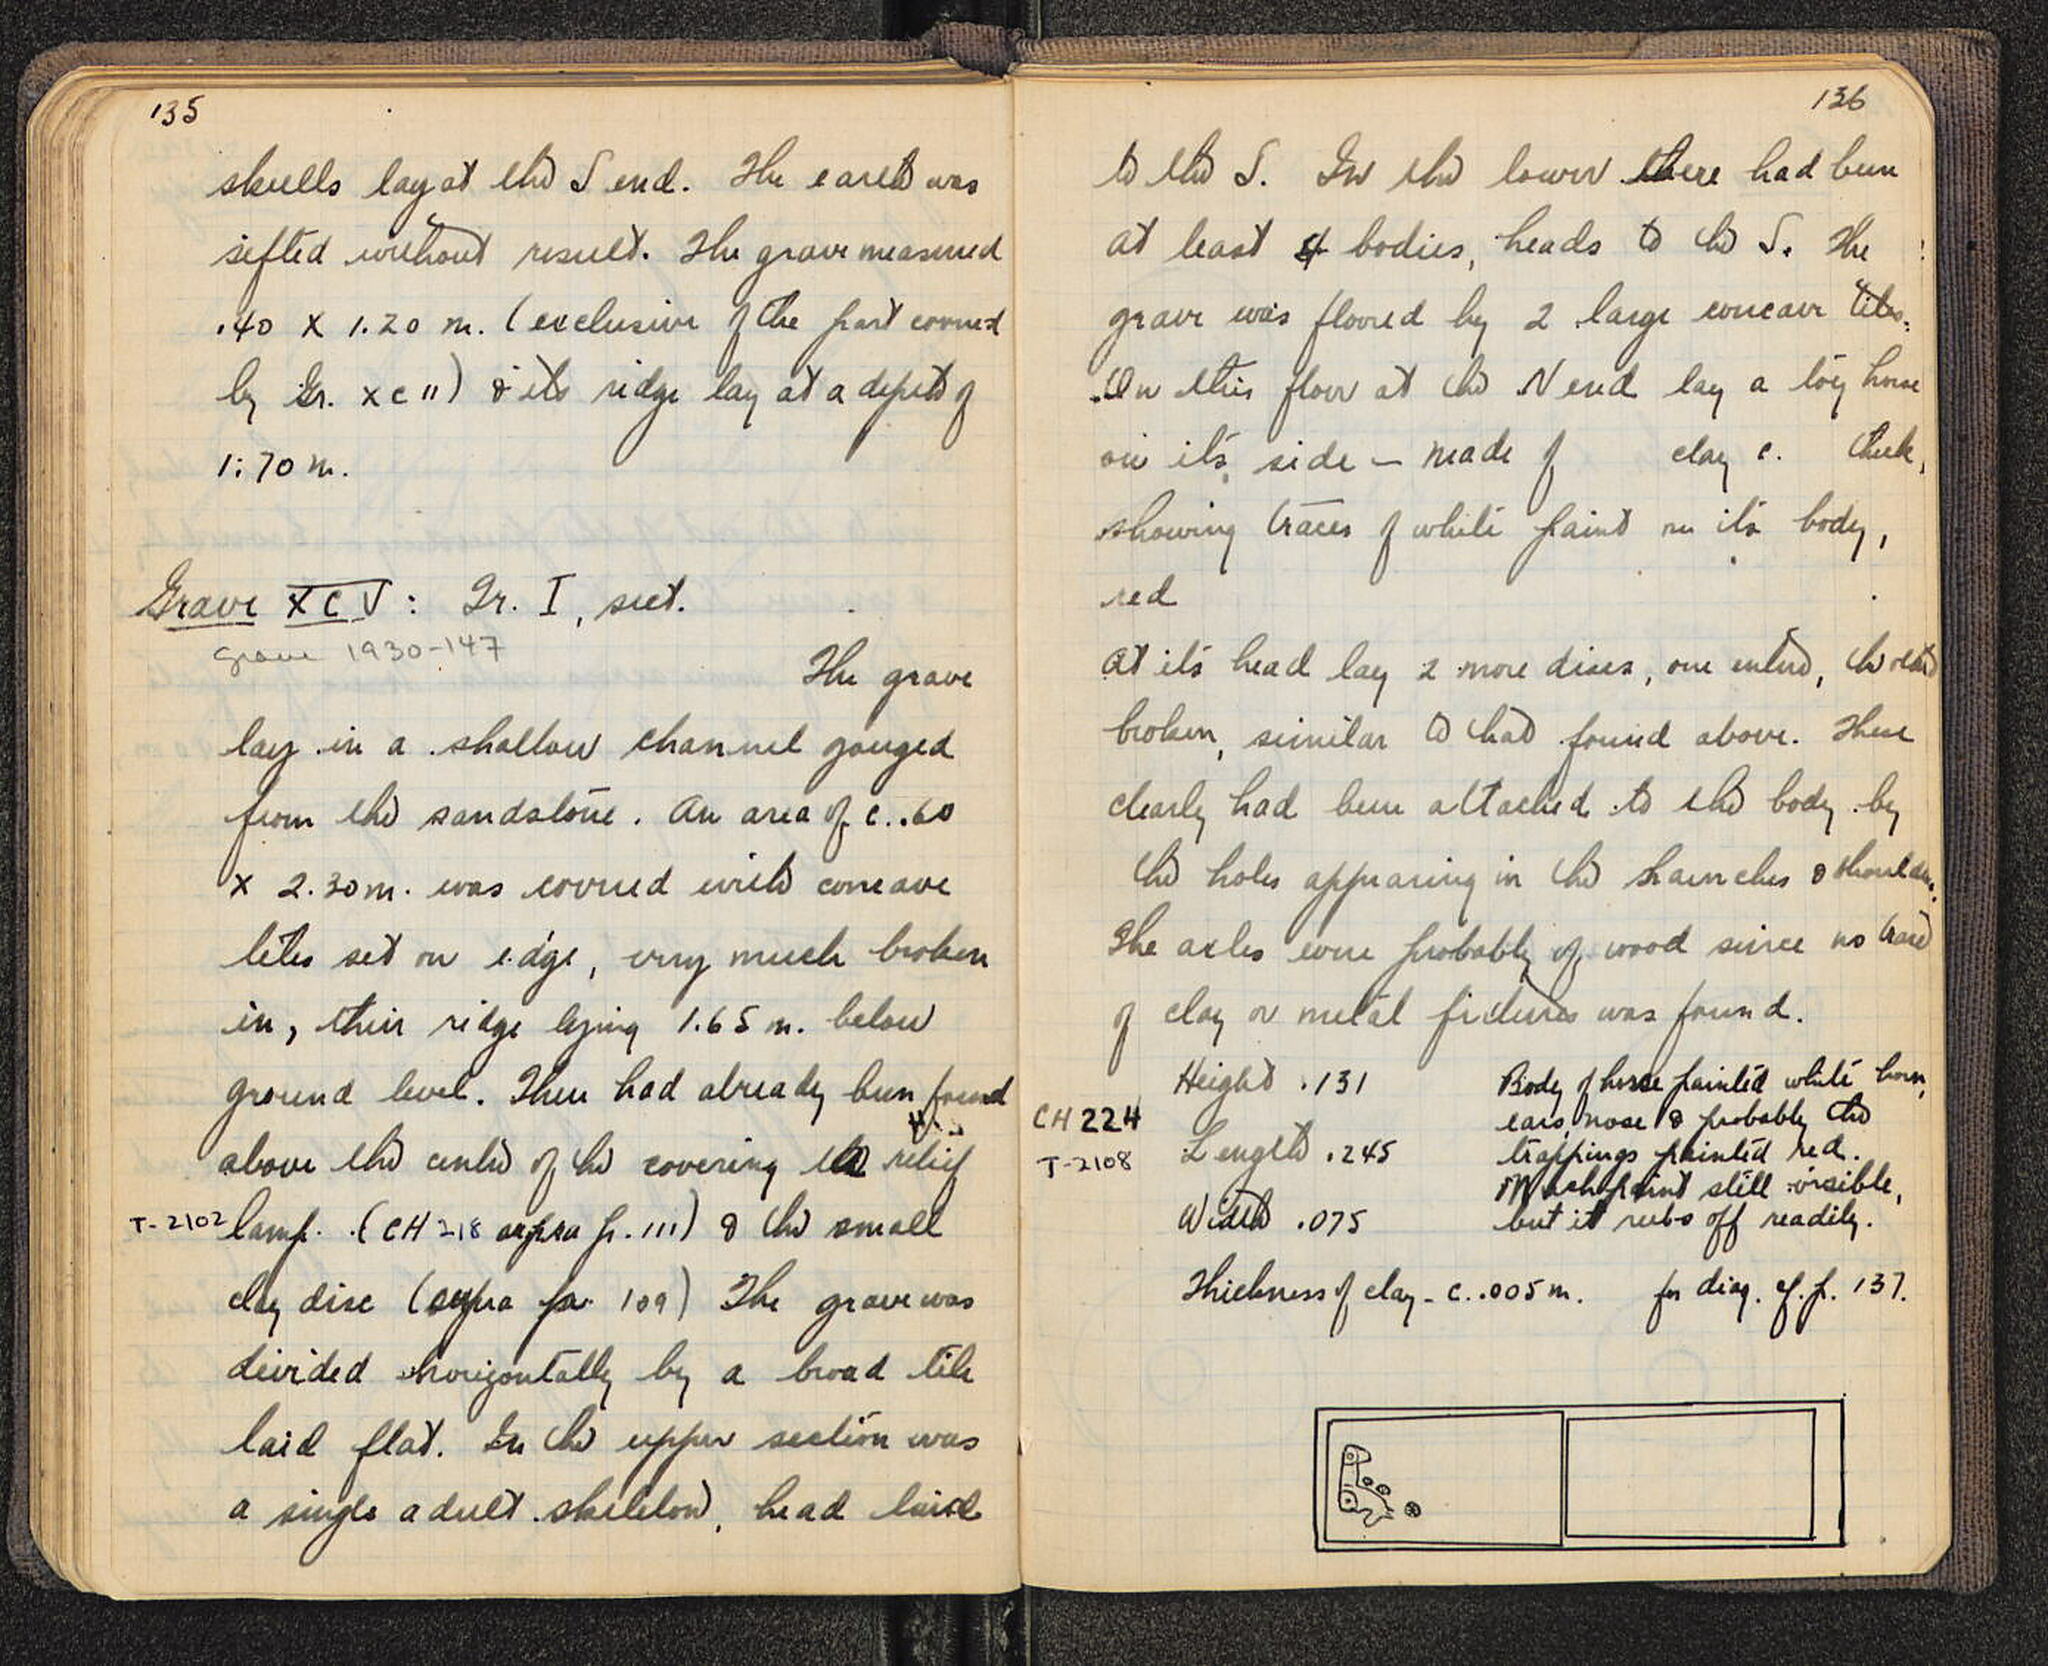 135
skulls lay at the S end. The earth was
sifted without result. The grave measured
.40 x 1.20 m. (exclusive of the part covered
by Gr. XCII) & its ridge lay at a depth of
1.70 m.
Grave XCV: Tr. I, sect.
grave 1930-147
The grave
lay in a shallow channel gouged
from the sandstone. An area of c. .60
x 2.30 m. was covered with concave
tiles set on edge, very much broken
in, their ridge lying 1.65 m. below
ground level. There had already been found
above the center of the covering the relief
T-2102 lamp. (CH 218 supra p. 111) & the small
clay disc (supra p. 109) The grave was
divided horizontally by a broad tile
laid flat. In the upper section was
a single adult skeleton, head laid
136
to the S. In the lower there had been
at least 4 bodies, heads to the S. The
grave was floored by 2 large concave tiles.
On this floor at the N end lay a toy horse
on its side — made of clay c. thick,
showing traces of white paint on its body,
red
At its head lay 2 more discs, one entire, the other
broken, similar to that found above. These
clearly had been attached to the body by
the holes appearing in the haunches & shoulders.
The axles were probably of wood since no trace
of clay or metal fixtures was found.
Height .131
CH 224
Length .245
T-2108
Width .075
Body of horse painted white horn,
ears, nose & probably the
trappings painted red.
Much paint still visible,
but it rubs off readily.
Thickness of clay - c. .005 m. for diag. cf. p. 137.